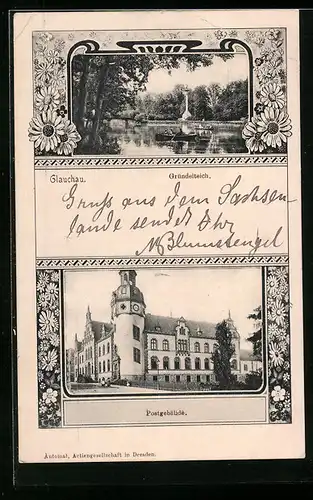 Glauchau. Gründelteich.
Gruß aus dem Sachsen
lande sendet Ihr
M Blumstengel
Postgebäude.
Automat, Actiengesellschaft in Dresden.